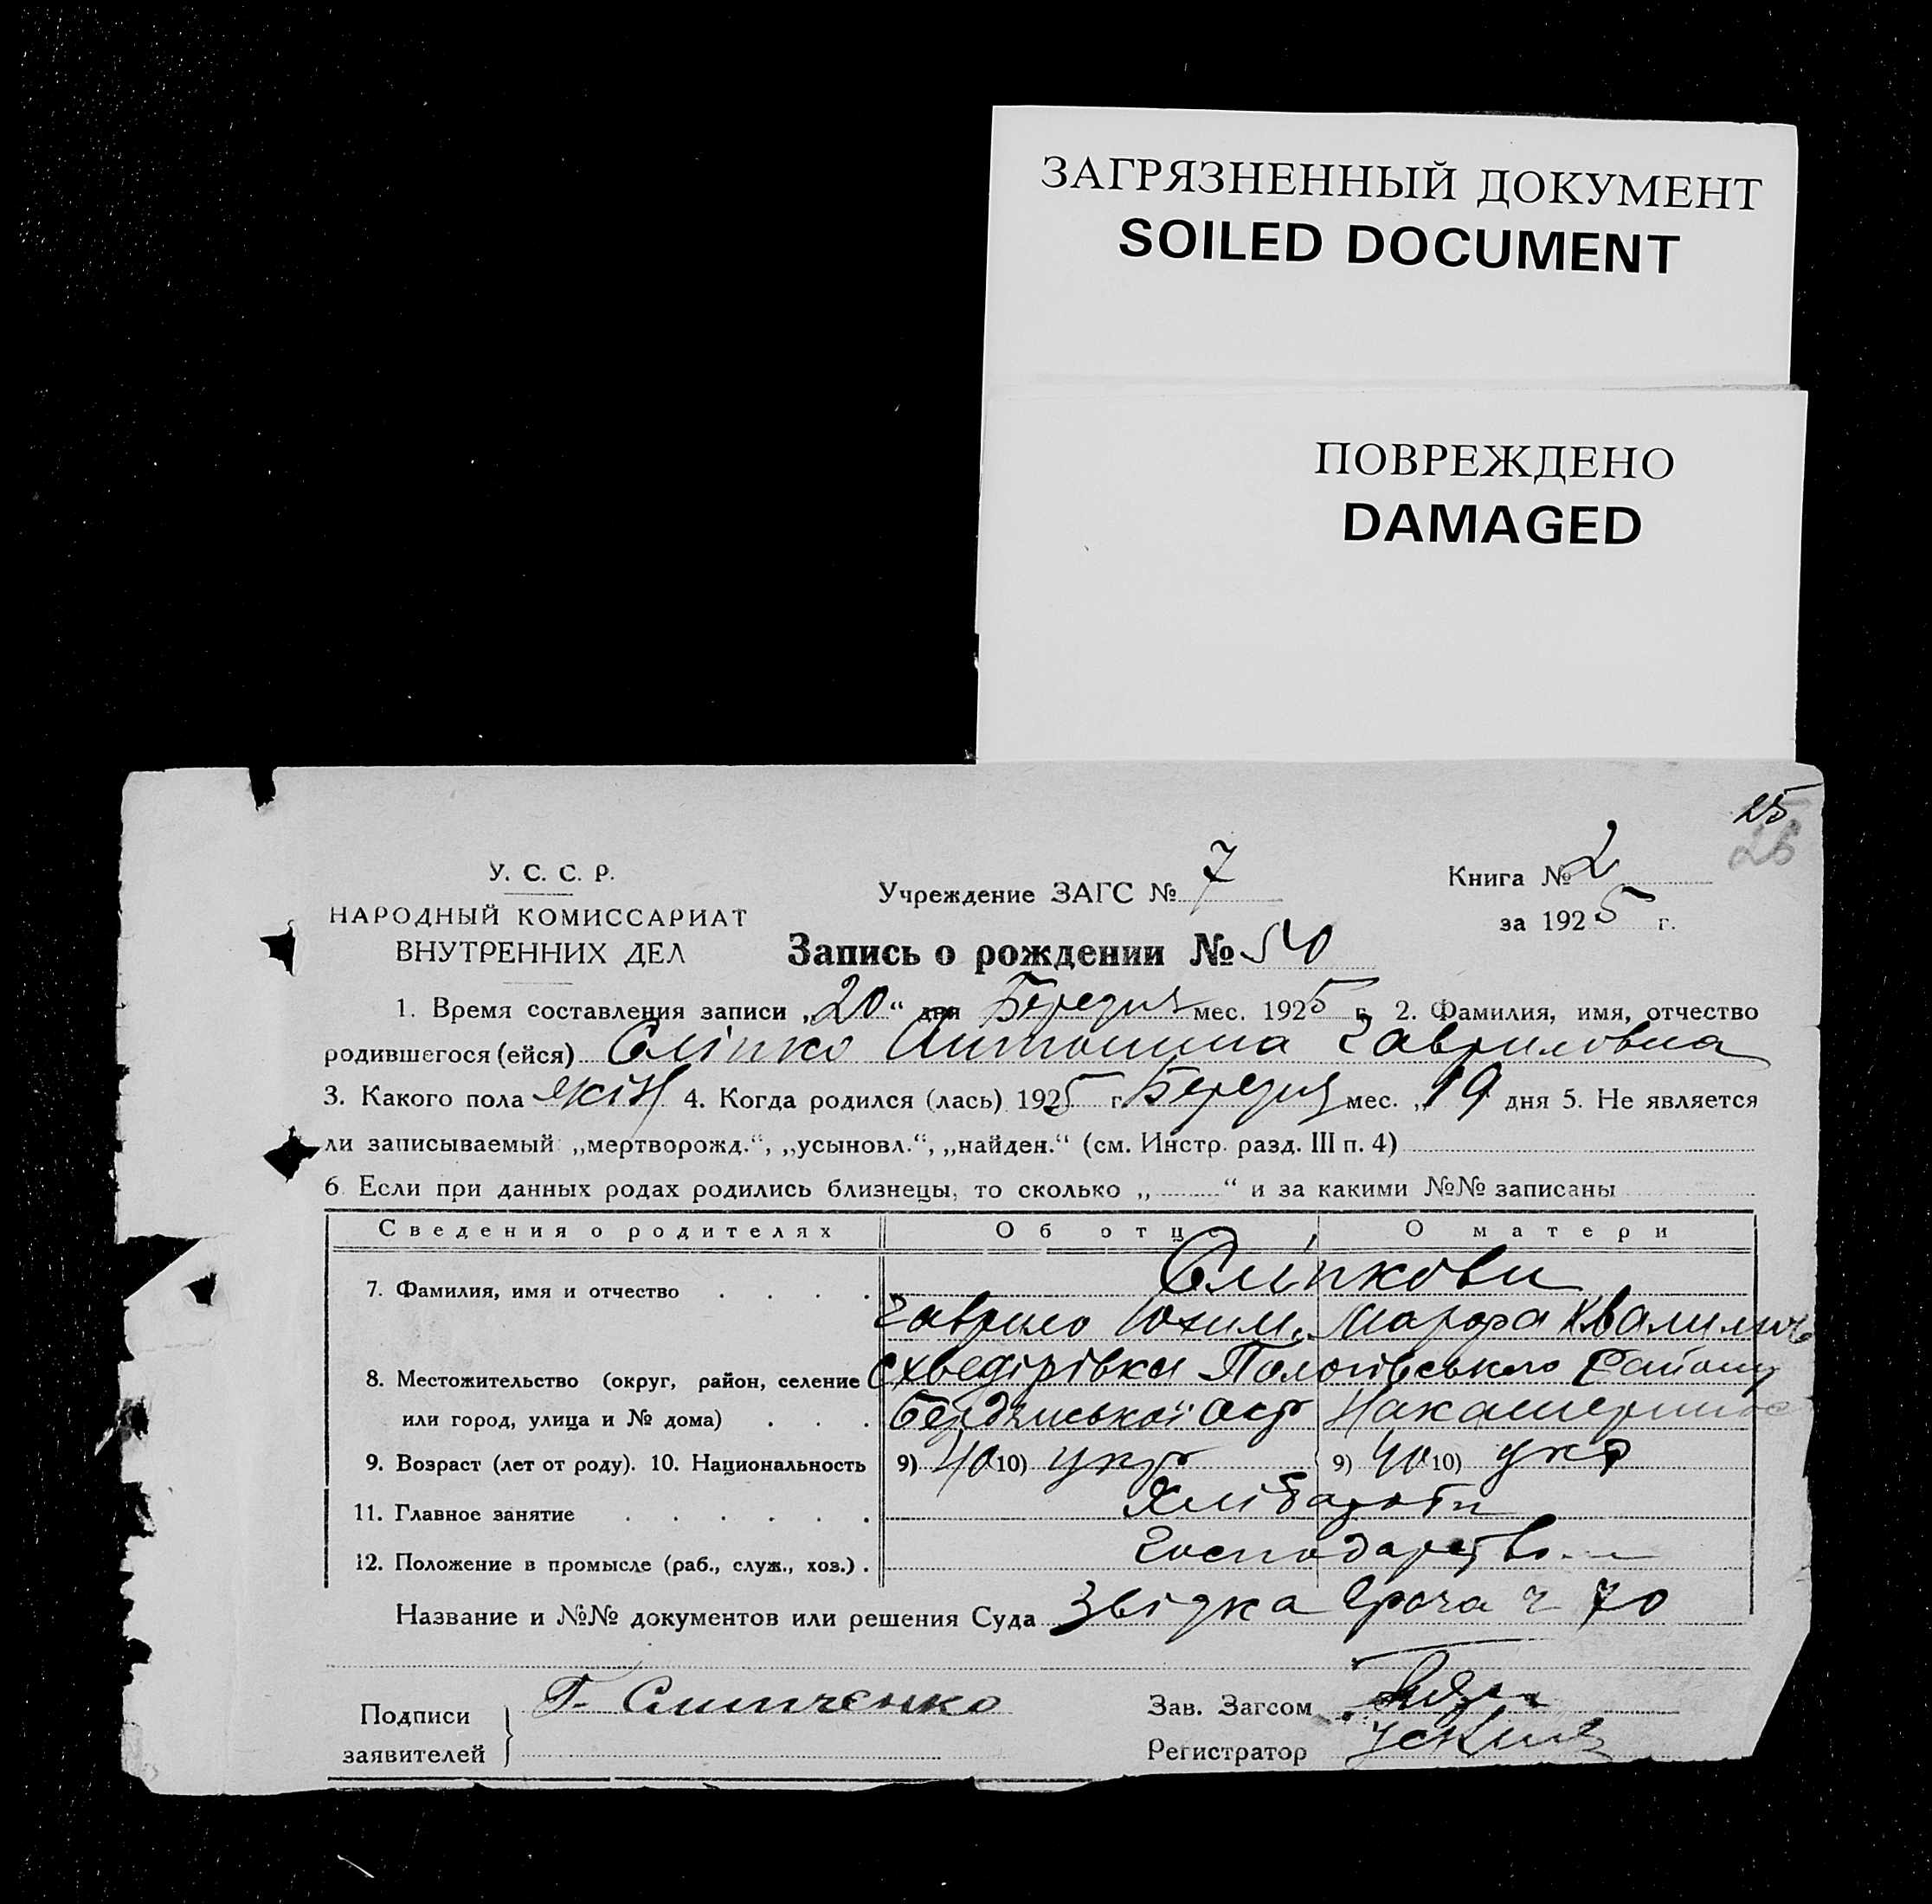 ЗАГРЯЗНЕННЫЙ ДОКУМЕНТ
SOILED DOCUMENT
ПОВРЕЖДЕНО
DAMAGED
25
26
У. С. С. Р.
НАРОДНЫЙ КОМИССАРИАТ
ВНУТРЕННИХ ДЕЛ
Учреждение ЗАГС № 7
Книга № 2
за 1925 г.
Запись о рождении № 50
1. Время составления записи „20“ дня Березня мес. 1925 г. 2. Фамилия, имя, отчество
родившегося (ейся) Сліпко Антонина Гавриловна
3. Какого пола жін 4. Когда родился (лась) 1925 г. Березня мес. „19 дня 5. Не является
ли записываемый „мертворожд.“, „усыновл.“, „найден.“ (см. Инстр. разд. III п. 4)
6 Если при данных родах родились близнецы, то сколько „ “ и за какими №№ записаны
Сведения о родителях Об отце О матери
7. Фамилия, имя и отчество Сліпкови
Гаврило Юхим. Марфа
8. Местожительство (округ, район, селение Пологівського Району
или город, улица и № дома) Бердянської Окр
9. Возраст (лет от роду). 10. Национальность 9) 40 10) укр 9) 40 10) укр
11. Главное занятие Хлібороби
12. Положение в промысле (раб., служ., хоз.) Господарство
Название и №№ документов или решения Суда Звідка 70
Подписи
заявителей
Г.
Зав. Загсом
Регистратор